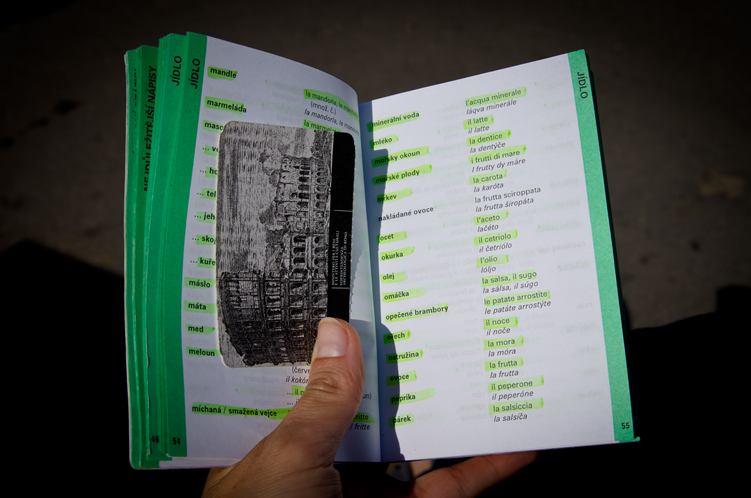 JÍDLO
JÍDLO
NEJDŮLEŽITĚJŠÍ NÁPISY
mandle
la mandorla, le
(množ. č.)
la mandorla, le
marmeláda
la marmellata
máslo
máta
med
meloun
il
míchaná / smažená vejce
fritte
/ fritte
46
54
JÍDLO
minerální voda
l'acqua minerale
láqva minerále
mléko
il latte
il latte
mořský okoun
la dentice
la dentýče
mořské plody
i frutti di mare
I frutty dy máre
mrkev
la carota
la karóta
nakládané ovoce
la frutta sciroppata
la frutta širopáta
ocet
l'aceto
lačéto
okurka
il cetriolo
il četriólo
olej
l'olio
lóljo
omáčka
la salsa, il sugo
la sálsa, il súgo
opečené brambory
le patate arrostite
le patáte arrostýte
ořech
il noce
il noče
ostružina
la mora
la móra
ovoce
la frutta
la frutta
paprika
il peperone
il peperóne
párek
la salsiccia
la salsíča
55